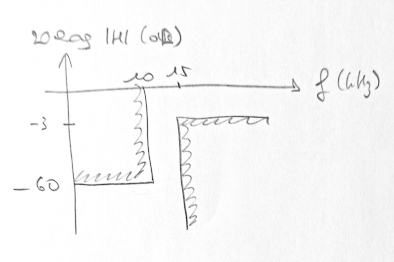 20 log |H| (dB)
10 15
f (kHz)
-3
-60